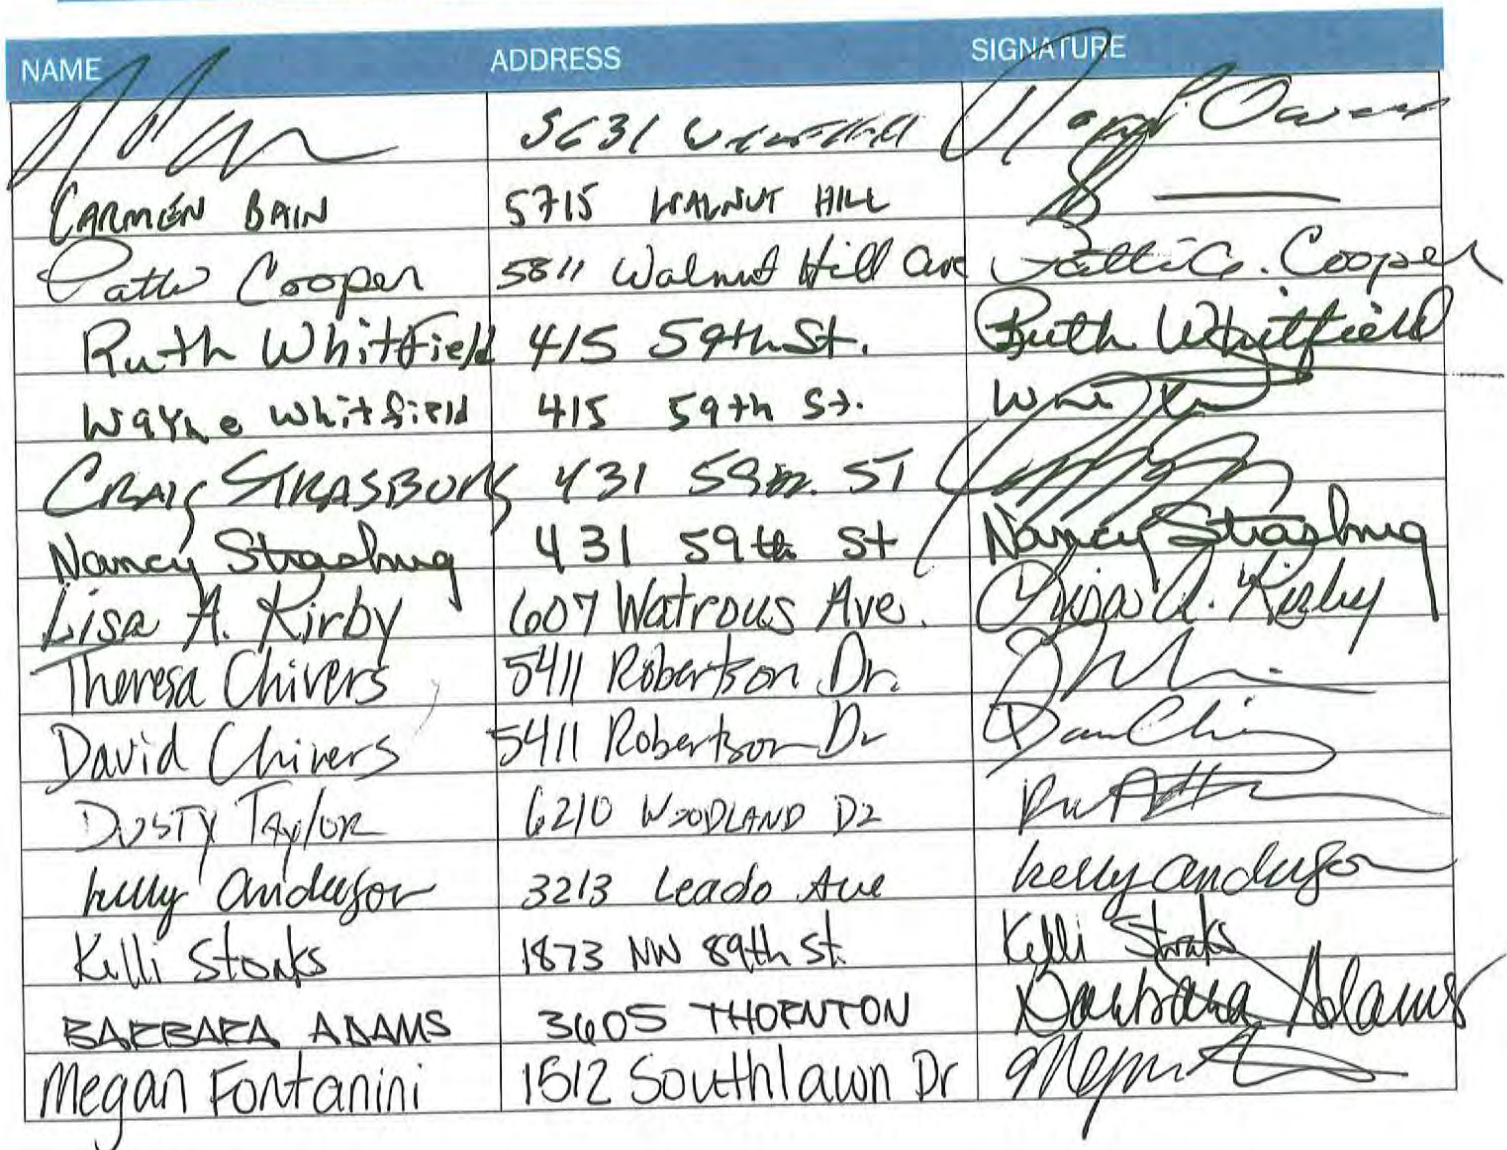 NAME ADDRESS SIGNATURE
5631
CARMEN BAIN 5715 WALNUT HILL
Patti Cooper 5811 Walnut Hill Ave Patti C. Cooper
Ruth Whitfield 415 59th St. Ruth Whitfield
Wayne Whitfield 415 59th St.
CRAIG STRASBURG 431 59th ST
Nancy Strasburg 431 59th St Nancy Strasburg
Lisa A. Kirby 607 Watrous Ave. Lisa A. Kirby
Theresa Chivers 5411 Robertson Dr.
David Chivers 5411 Robertson Dr
DUSTY Taylor 6210 WOODLAND DR
Kelly Anderson 3213 Leado Ave Kelly Anderson
Kelli Storks 1873 NW 89th St. Kelli Storks
BARBARA ADAMS 3605 THORNTON Barbara Adams
Megan Fontanini 1512 Southlawn Dr